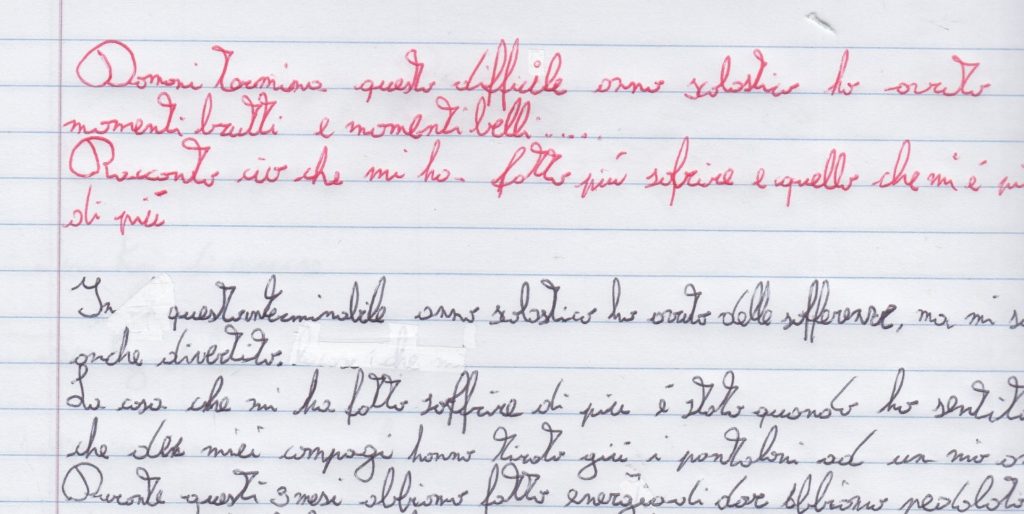 Domani termina questo difficile anno scolastico ho avuto
momenti brutti e momenti belli.....
Racconto ciò che mi ha fatto più sofrire e quello che mi é pi
di più
In questo interminabile anno scolastico ho avuto delle sofferenze, ma mi s
anche divertito.
La cosa che mi ha fatto soffrire di più é stato quando ho sentito
che dei miei compagi hanno tirato giù i pantaloni ad un mio a
Durante questi 3 mesi abbiamo fatto energiadi dove abbiamo pedalato